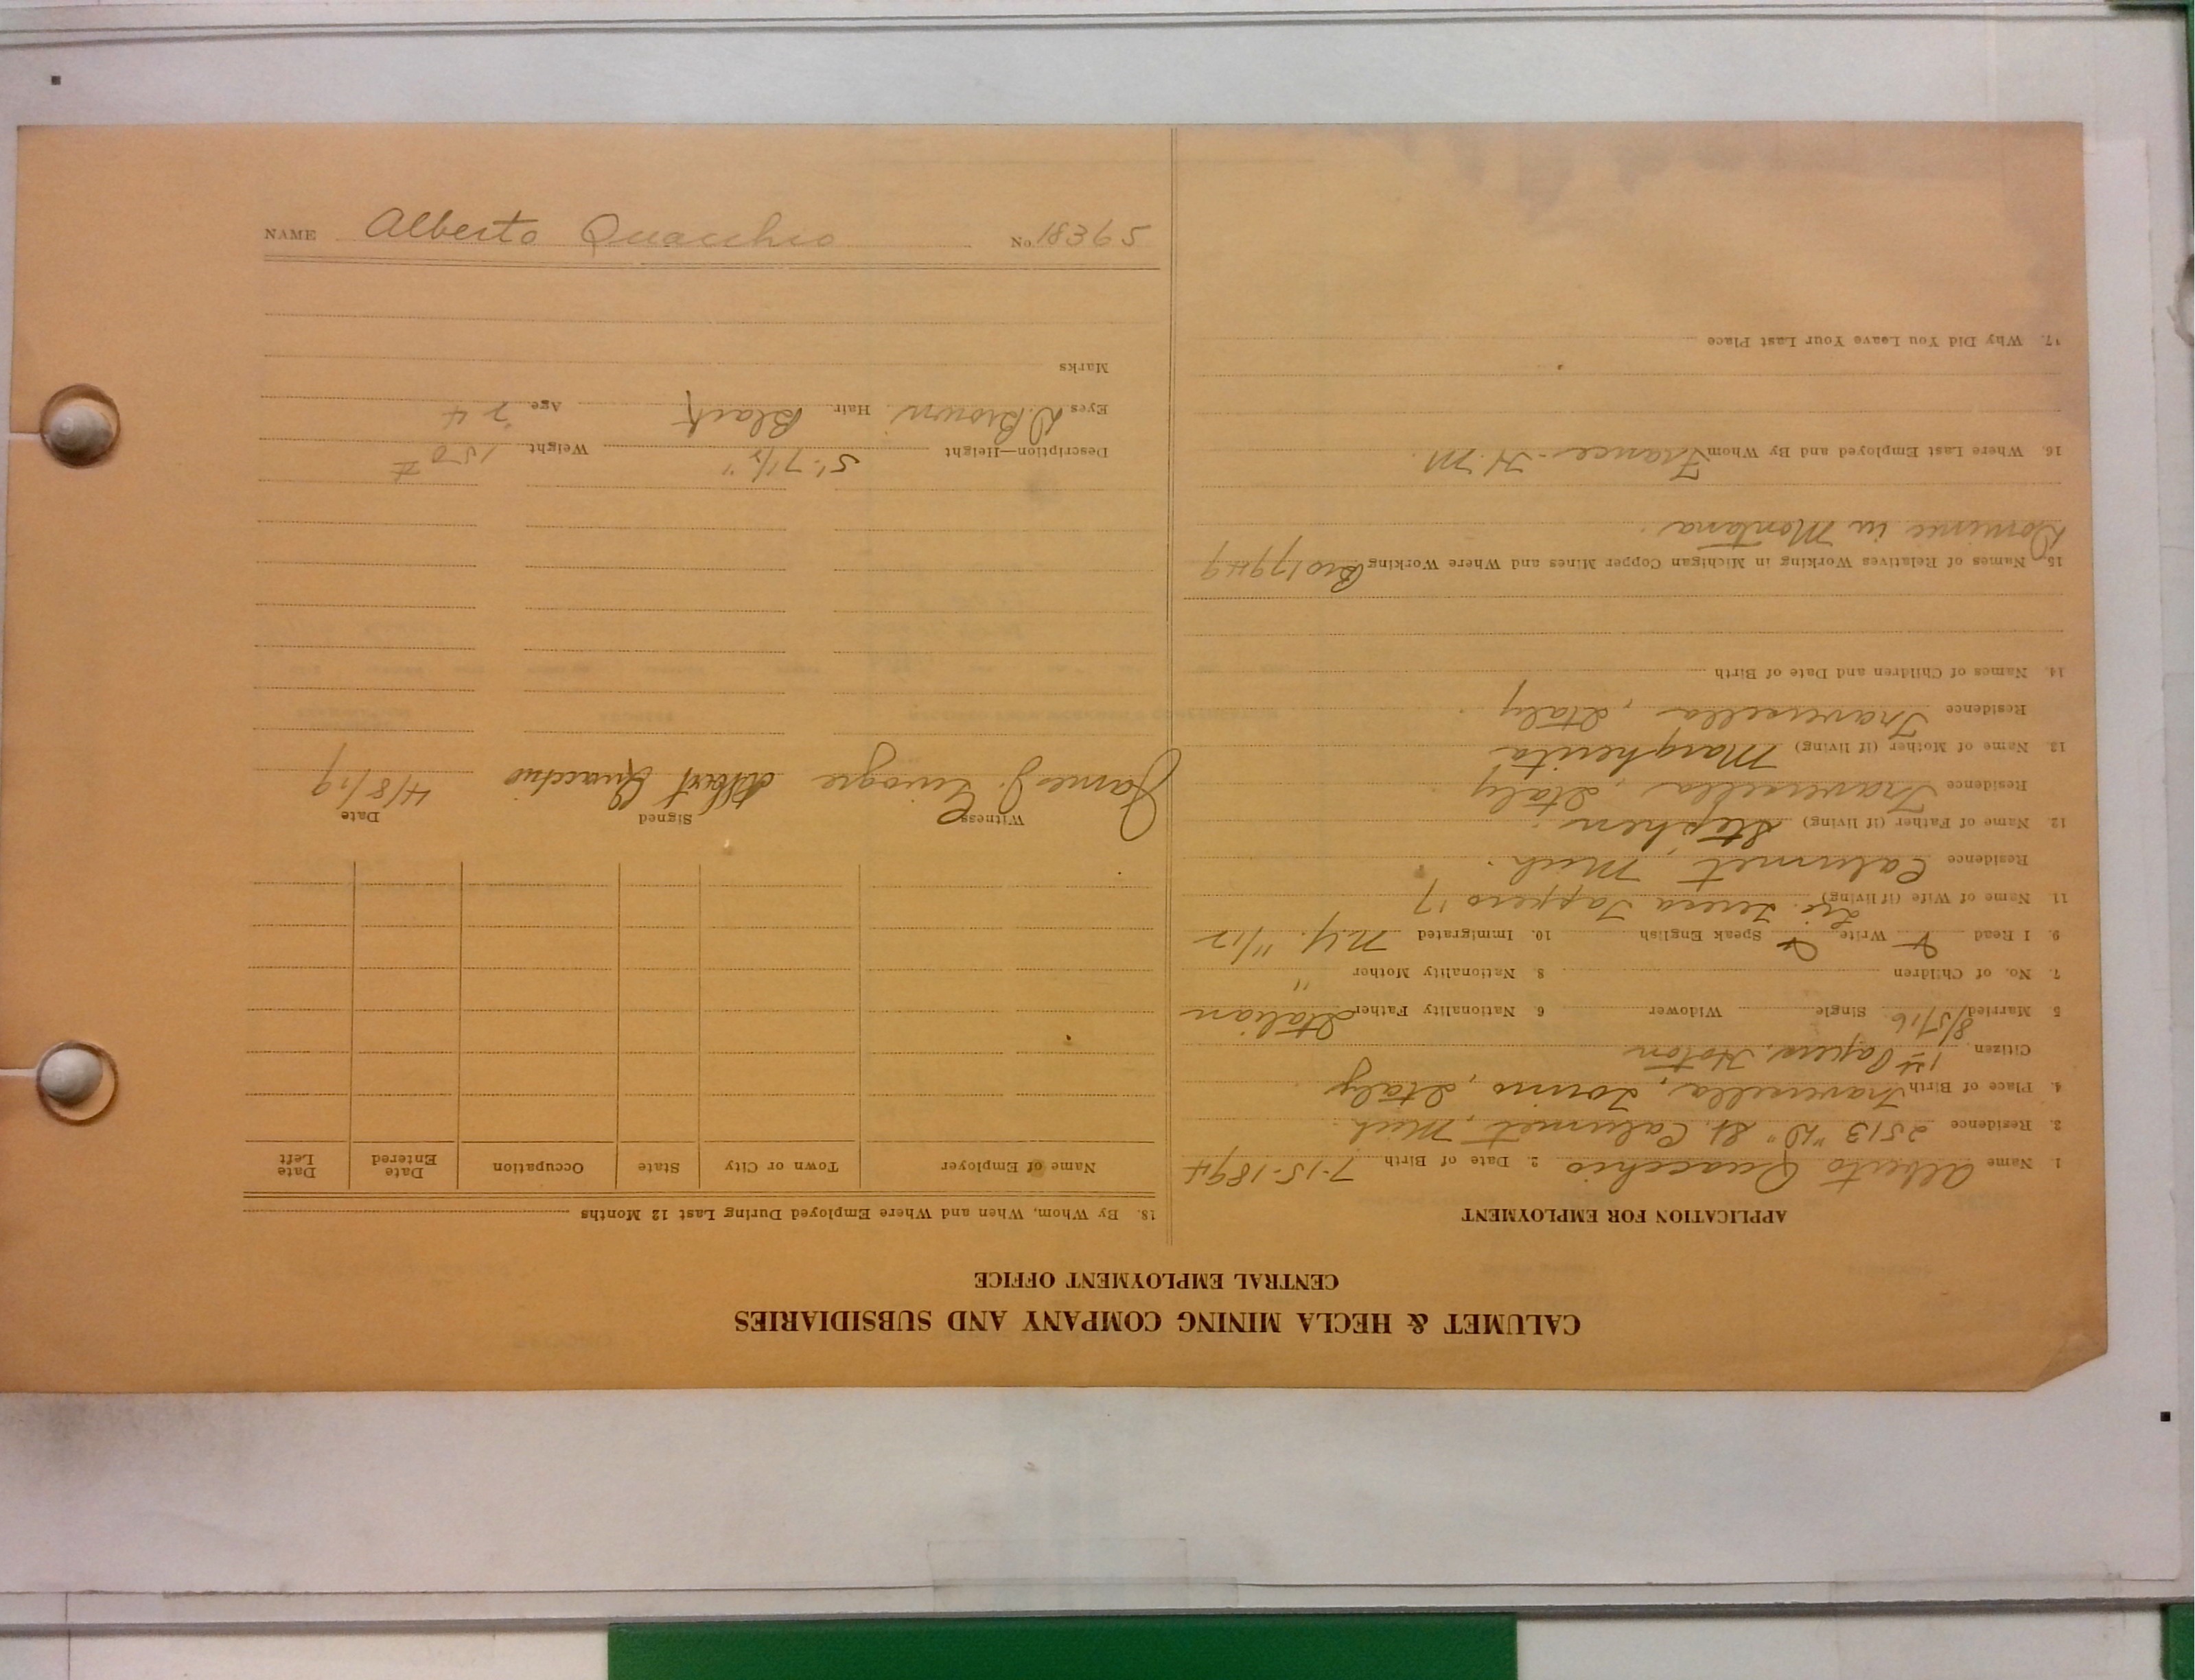 CALUMET & HECLA MINING COMPANY AND SUBSIDIARIES
CENTRAL EMPLOYMENT OFFICE
APPLICATION FOR EMPLOYMENT
1. Name Alberto Quacchio 2. Date of Birth 7-15-1894
3. Residence 2513 "D" St. Calumet, Mich.
4. Place of Birth Traversella, Torino, Italy
Citizen 1st Papers. Hoton
5 Married 8/5/16. Single Widower 6. Nationality Father Italian
7. No. of Children 8. Nationality Mother "
9. I Read Write Speak English 10. Immigrated N.Y. 11/12
11. Name of Wife (if living) Teresa Tappero 17
Residence Calumet, Mich.
12. Name of Father (if living) Stephen.
Residence Traversella, Italy
13. Name of Mother (if living) Margherita
Residence Traversella, Italy.
14. Names of Children and Date of Birth
15. Names of Relatives Working in Michigan Copper Mines and Where Working Bro 17949
Dominic in Montana.
16. Where Last Employed and By Whom France - H.M.
17. Why Did You Leave Your Last Place
18. By Whom, When and Where Employed During Last 12 Months
Name of Employer Town or City State Occupation Date Entered Date Left
Witness Signed Date
James J. Albert Quacchio 4/8/19
Description—Height 5'-7 1/2" Weight 150 #
Eyes D. Brown Hair Black Age 24
Marks
NAME Alberto Quacchio No. 18365